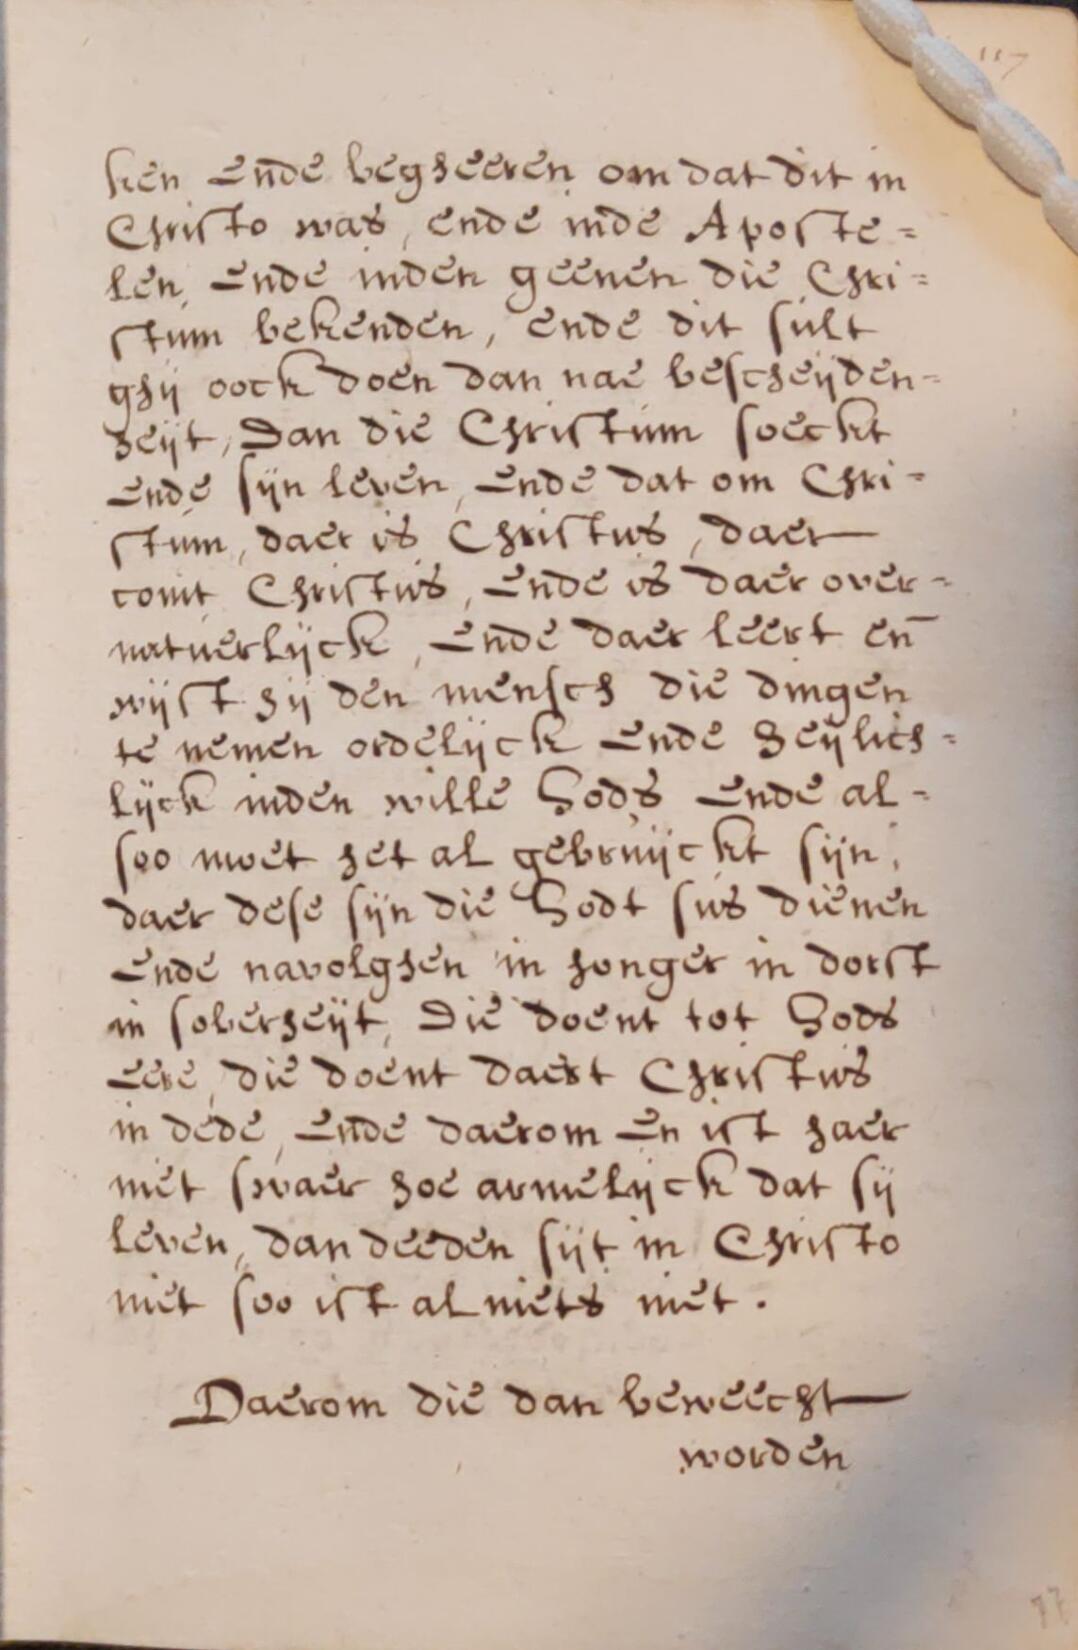 117
ken ende begheeren om dat dit in
Christo was, ende inde Aposte=
len, ende inden geenen die Chri=
stum bekenden, ende dit sult
ghij oock doen dan nae bescheijden=
heijt, Dan die Christum soeckt
ende sijn leven, ende dat om Chri=
stum, daer is Christus, daer
comt Christus, ende is daer over=
natuerlijck, ende daer leert en̄
wijst hij den mensch die dingen
te nemen ordelijck ende heijlich=
lijck inden wille Gods ende al=
soo moet het al gebruijckt sijn,
daer dese sijn die Godt sus dienen
ende navolghen in honger in dorst
in soberheijt, Die doent tot Gods
eere, die doent daert Christus
in dede, ende daerom en ist haer
niet swaer hoe armelijck dat sij
leven, dan deeden sijt in Christo
niet soo ist al niets niet.
Daerom die dan beweecht
worden
77